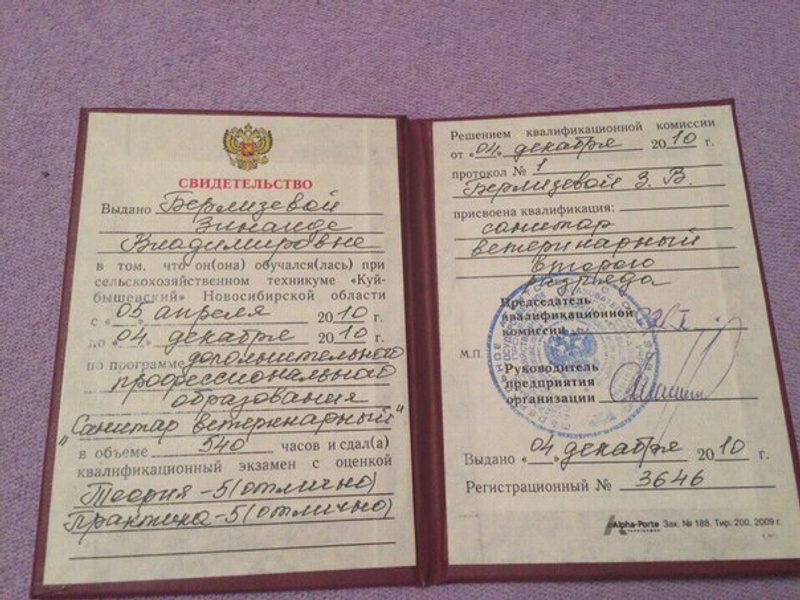 СВИДЕТЕЛЬСТВО
Выдано Берлизевой
Зинаиде
Владимировне
в том, что он(она) обучался(лась) при
сельскохозяйственном техникуме «Куй-
бышевский» Новосибирской области
с «05 апреля 2010 г.
по «04» декабря 2010 г.
по программе дополнительного
профессионального
образования
"Санитар ветеринарный"
в объеме 540 часов и сдал(а)
квалификационный экзамен с оценкой
Теория -5 (отлично)
Практика -5 (отлично)
Решением квалификационной комиссии
от «04» декабря 2010 г.
протокол № 1
Берлизевой З. В.
присвоена квалификация:
санитар
ветеринарный
второго
разряда
Председатель
квалификационной
комиссии
М.П.
Руководитель
предприятия
организации
Выдано «04 декабря 2010 г.
Регистрационный № 3646
Alpha-Porte Зак. № 188. Тир. 200. 2009 г.